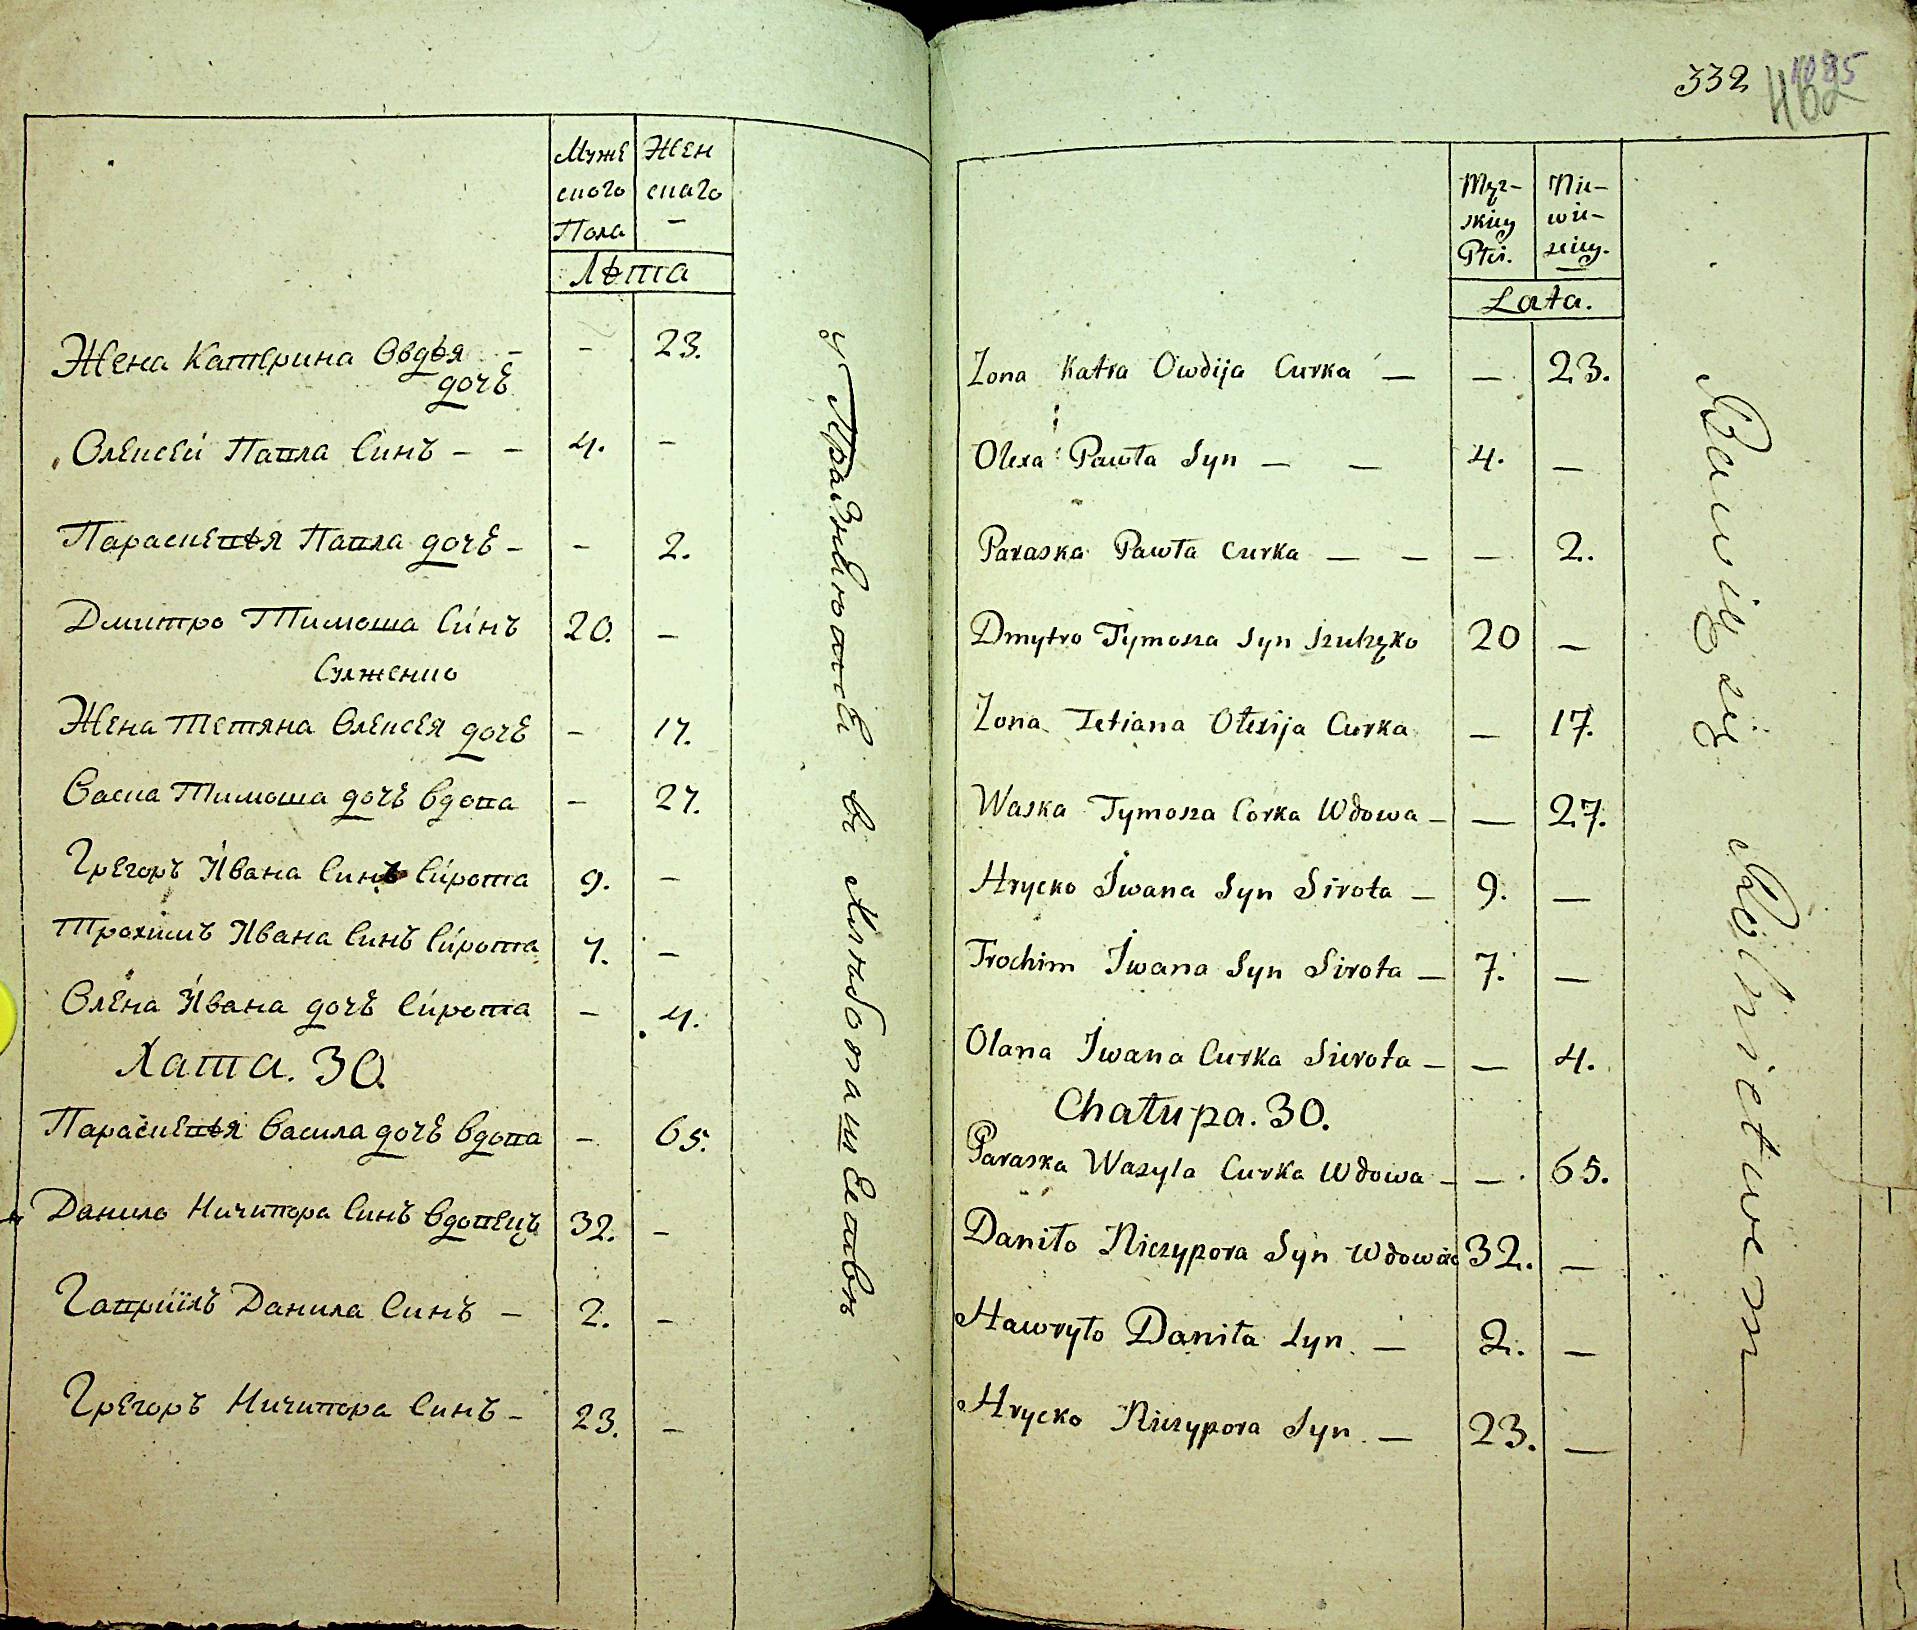 Муже
ского
Пола
Жен
ского
Лѣта
Жена Катерина Овдѣя - - 23.
дочь
Олексей Павла Синъ - - 4. -
Параскевѣя Павла дочь - - 2.
Дмитро Тимоша Синъ 20. -
Жена Тетяна Олексея дочь - 17.
Васка Тимоша дочь вдова - 27.
Грегоръ Ивана Синъ Сирота 9. -
Трохимъ Ивана Синъ Сирота 7. -
Олена Ивана дочь Сирота - 4.
Хата. 30.
Параскевѣя Василя дочь вдова - 65.
Данило Ничипора Синъ вдовецъ 32. -
Гавриилъ Данила Синъ - 2. -
Грегоръ Ничипора Синъ - 23. -
332
Męz-
skiey
Płci.
Nie-
wie-
sciey.
Lata.
Zona Katra Owdija Curka — — 23.
Olexa Pawła Syn — — 4. —
Paraska Pawła Curka — — — 2.
Dmytro Tymosza Syn 20 —
Zona Tetiana Olexija Curka — 17.
Waska Tymosza Corka Wdowa — — 27.
Hrycko Iwana Syn Sirota — 9. —
Trochim Iwana Syn Sirota — 7. —
Olana Iwana Curka Sierota — — 4.
Chałupa. 30.
Paraska Wasyla Curka Wdowa — — 65.
Daniło Niczypora Syn Wdowiec 32. —
Hawryło Daniła Syn. — 2. —
Hrycko Niczypora Syn. — 23. —